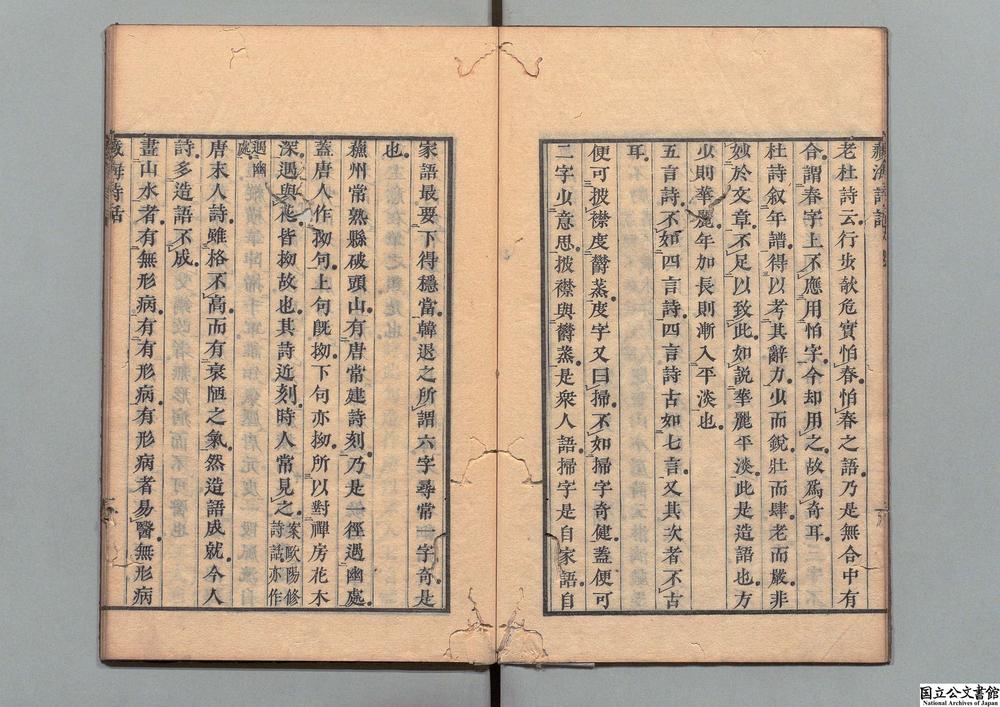 藏海詩話
老杜詩云行步欹危實怕春怕春之語乃是無合中有
合謂春字上不應用怕字今却用之故爲奇耳
杜詩敘年譜得以考其辭力少而銳壯而肆老而嚴非
妙於文章不足以致此如說華麗平淡此是造語也方
少則華麗年加長則漸入平淡也
五言詩不如四言詩四言詩古如七言又其次者不古
耳
便可披襟度欝蒸度字又曰掃不如掃字奇健蓋便可
二字少意思披襟與欝蒸是衆人語掃字是自家語自
家語最要下得穩當韓退之所謂六字尋常一字奇是
也
蘓州常熟縣破頭山有唐常建詩刻乃是一徑遇幽處
蓋唐人作拗句上句旣拗下句亦拗所以對禪房花木
深遇與花皆拗故也其詩近刻時人常見之
案歐陽修
詩話亦作
遇幽
處
唐末人詩雖格不高而有衰陋之氣然造語成就今人
詩多造語不成
畫山水者有無形病有有形病有形病者易醫無形病
藏海詩話
国立公文書館
National Archives of Japan